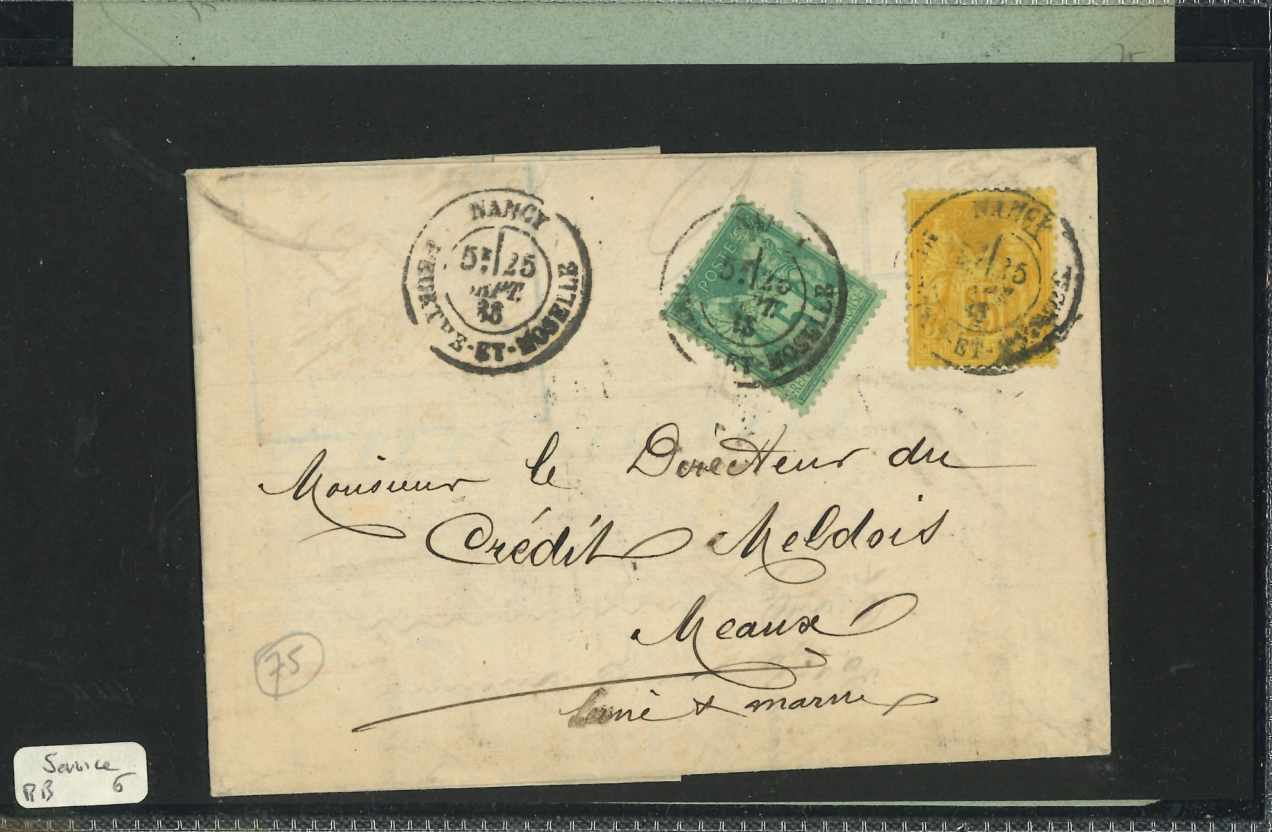 NANCY
5E 25
SEPT.
MEURTHE-ET-MOSELLE
POSTES
5
25
PT.
ET-MOSELLE
NANCY
25
ET-MOSELLE
Monsieur le Directeur du
Crédit Meldois
Meaux
Seine & marne
75
Service
RB 6